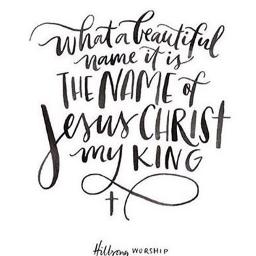 what a beautiful
name it is
THE NAME of
Jesus CHRIST
my KING
Hillsong WORSHIP